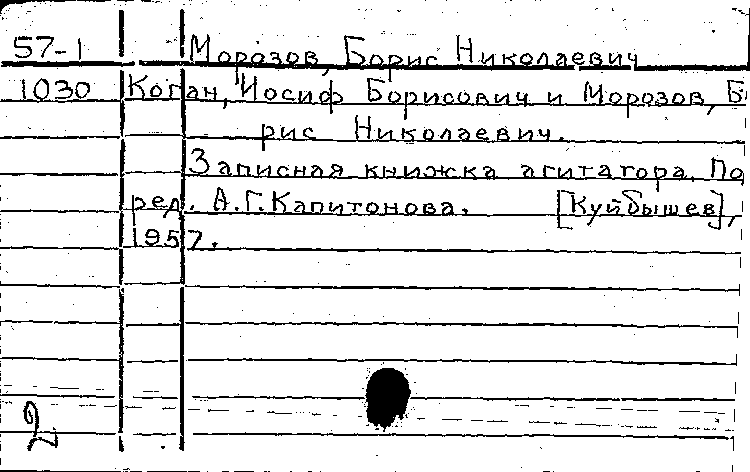 57-1 Морозов, Борис Николаевич
1030 Коган, Иосиф Борисович и Морозов, Б
рис Николаевич.
Записная книжка агитатора. По
ред. А.Г.Капитонова. [Куйбышев],
1957.
2